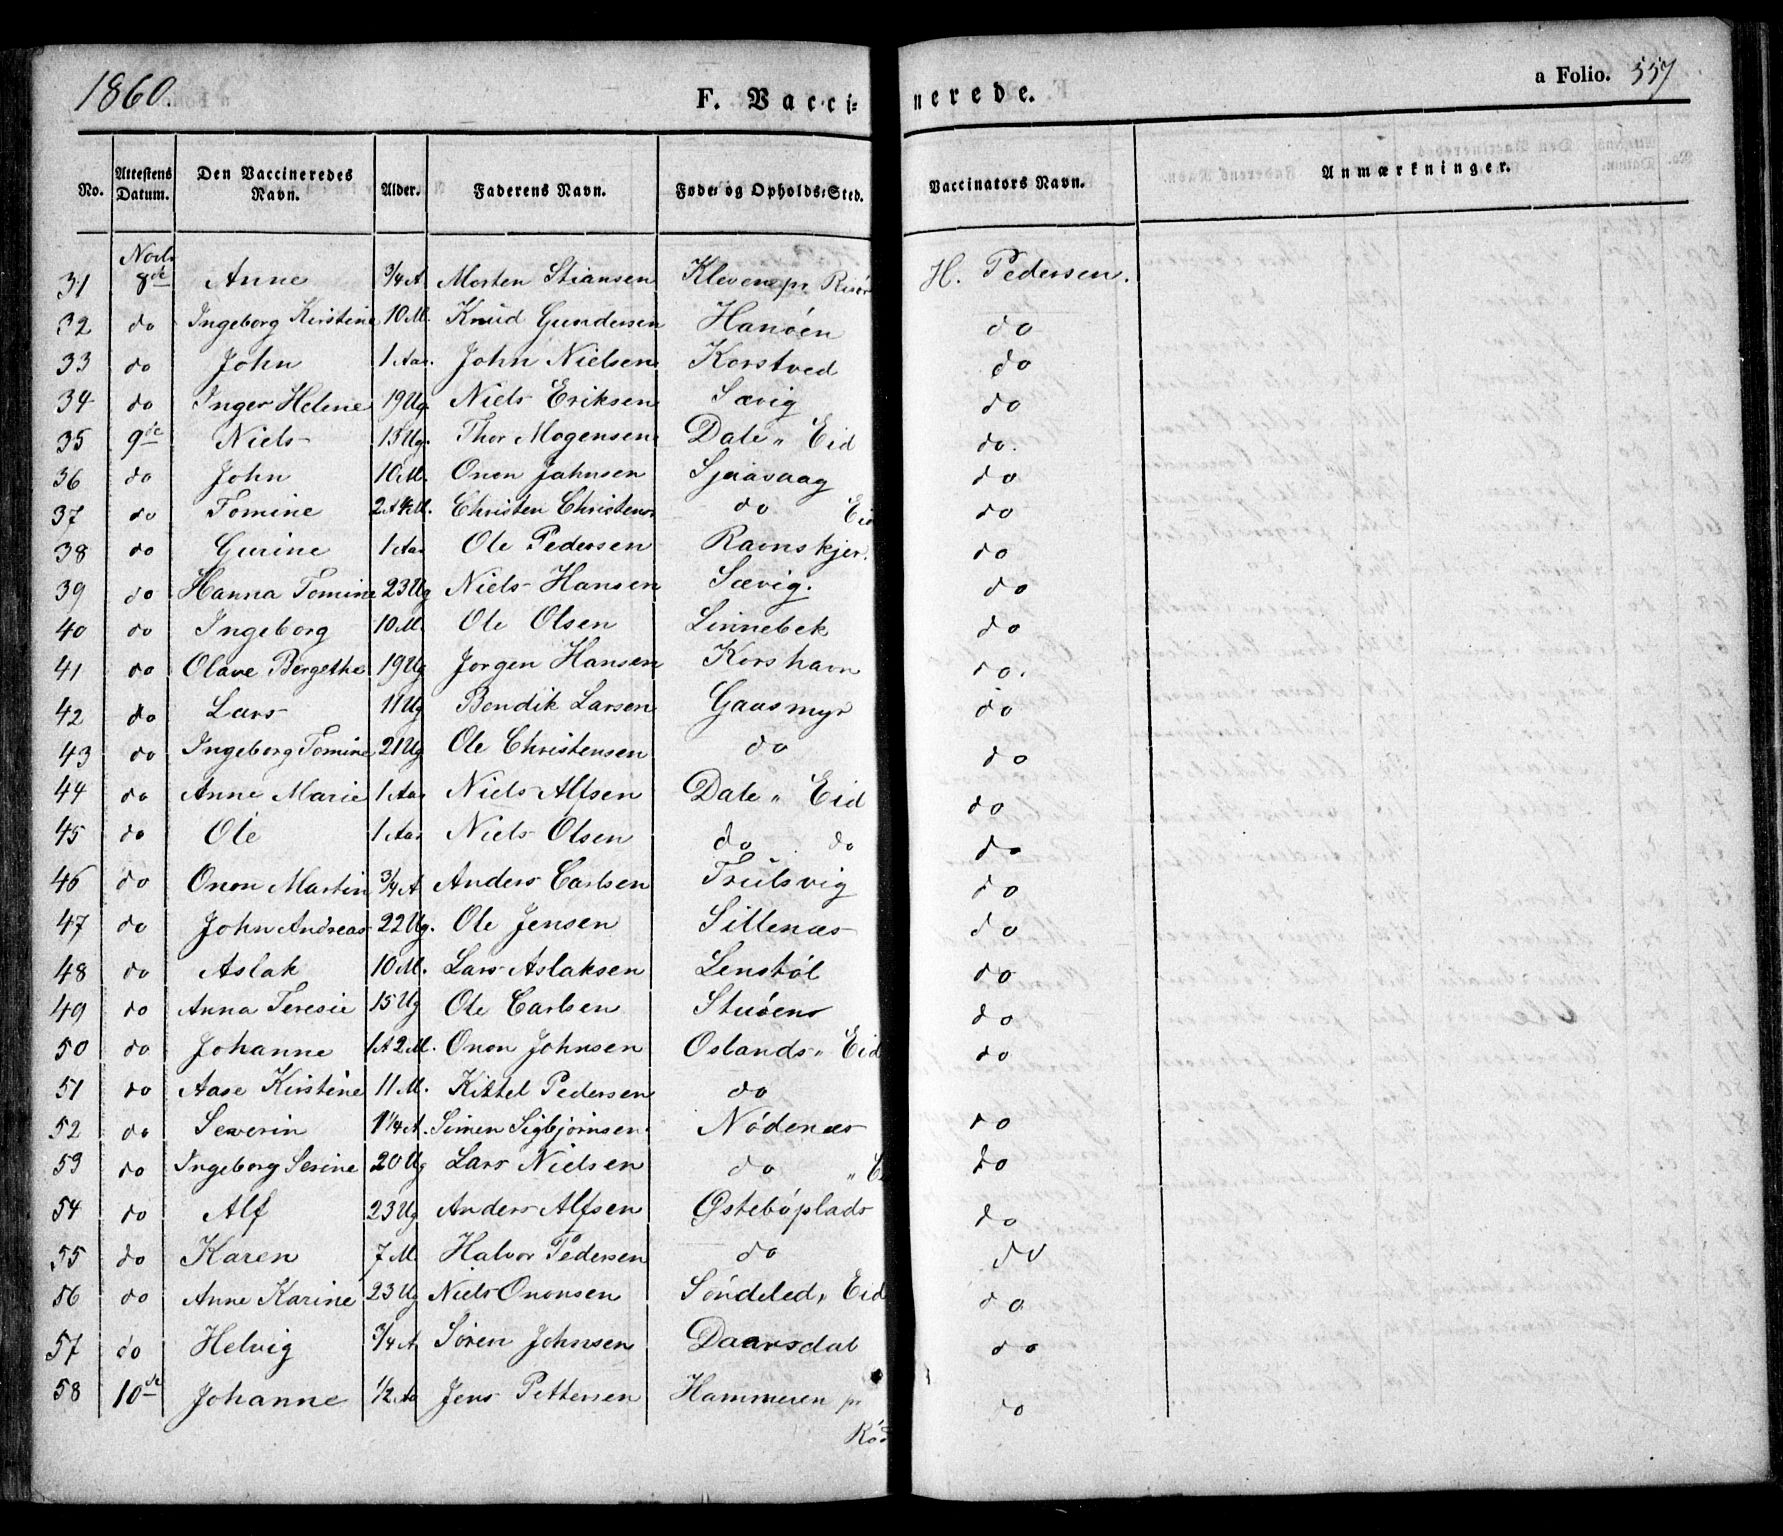 1860. F. Vacci= nerede. a Folio. 557
No. Attestens Datum. Den Vaccineredes Navn. Alder. Faderens Navn. Føde= og Opholds=Sted. Vaccinators Navn. Anmærkninger.
31 8de Anne 3/4 A Morten Stiansen Kleven pr. Risør H. Pedersen.
32 do Ingeborg Kirstine 10 M. Knud Gundersen Hanöen do
33 do John 1 Aar. John Nielsen Korstved do
34 do Inger Helene 19 Ug Niels Eriksen Sævig do
35 9de Niels 13 Ug. Thor Mogensen Dale " Eid do.
36 do John 10 M. Onon Jahnsen Sjaavaag do
37 do Tomine Christen Christens do Eid do
38 do Gurine 1 Aar Ole Pedersen Ravnskjer. do
39 do Hanna Tomine 23 Ug Niels Hansen Sævig. do
40 do Ingeborg 10 M. Ole Olsen Linnebek do
41 do Olave Bergethe 19 Ug Jørgen Hansen Korshavn do.
42 do Lars 11 Ug Bendik Larsen Gaasmyr do
43 do Ingeborg Tomine 21 Ug Ole Christensen do do
44 do Anne Marie 1 Aar Niels Alfsen Dale " Eid do
45 do Ole 1 Aar Niels Olsen do do do
46 do Onon Martin 3/4 A Anders Carlsen Trulsvig do
47 do John Andreas 22 Ug. Ole Jensen Sillenæs do
48 do Aslak 10 M. Lars Aslaksen Lenstöl do
49 do Anna Teresie 15 Ug Ole Carlsen Stuöens do
50 do Johanne 1 A 2 M. Onon Johnsen Oslands " Eid do
51 do Aase Kirstine 11 M. Kittel Pedersen do
52 do Severin 1 1/4 A. Simen Sigbjørnsen. Nödenæs do
53 do Ingeborg Serine 20 Ug Lars Nielsen do " E do
54 do Alf 23 Ug Anders Alfsen Østeböplads do
55 do Karen 7 M Halvor Pedersen do do
56 do Anne Karine 23 Ug Niels Ononsen Söndeled, Eid do
57 do Helvig 3/4 A Sören Johnsen Daarsdal do
58 10de Johanne 1/2 Aa Jens Pettersen Hammeren pr do
Röd